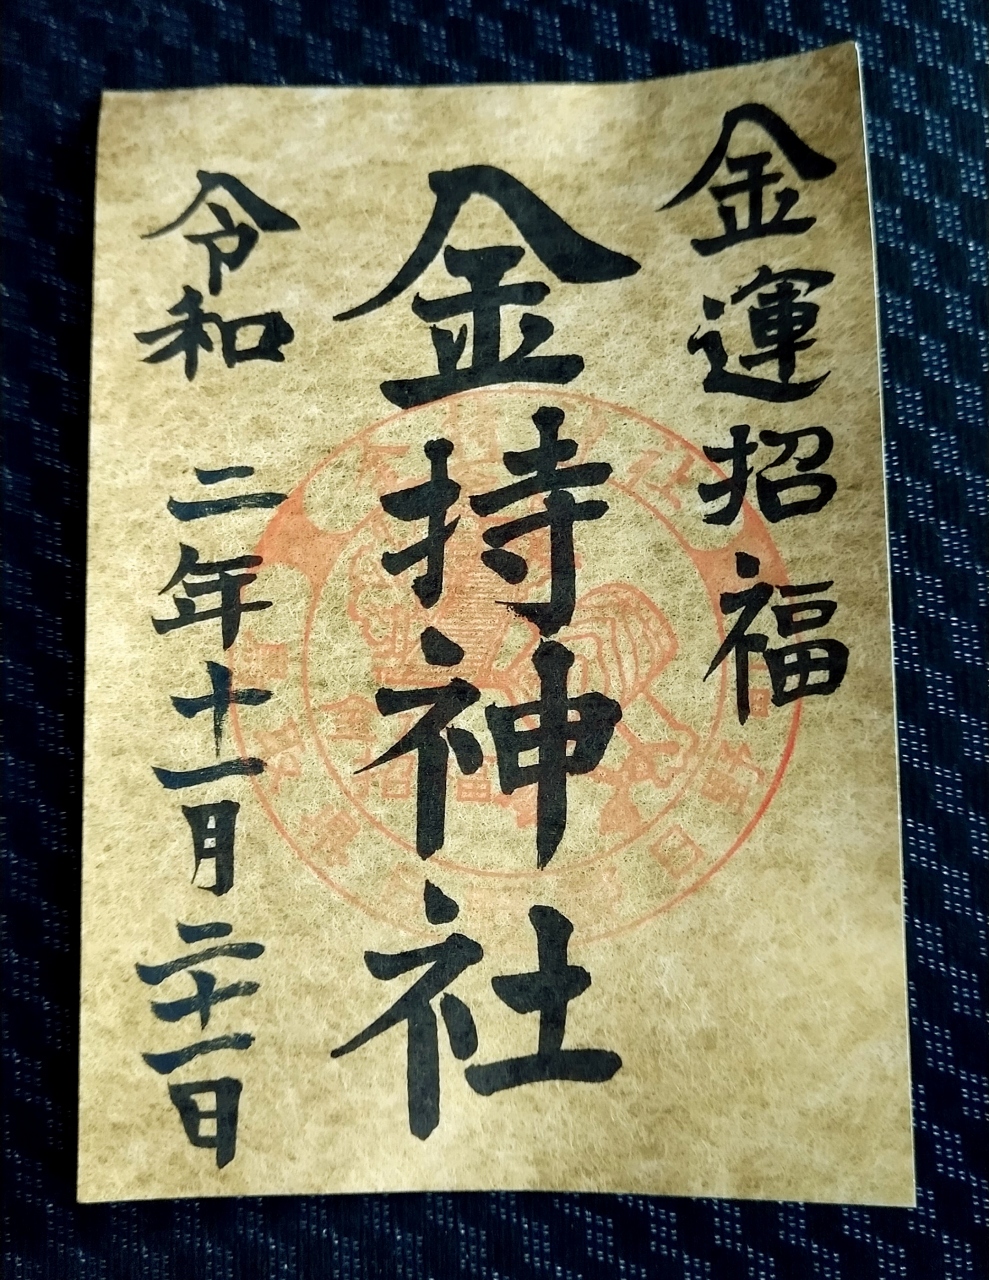 金運招福
金持神社
令和二年十一月二十一日